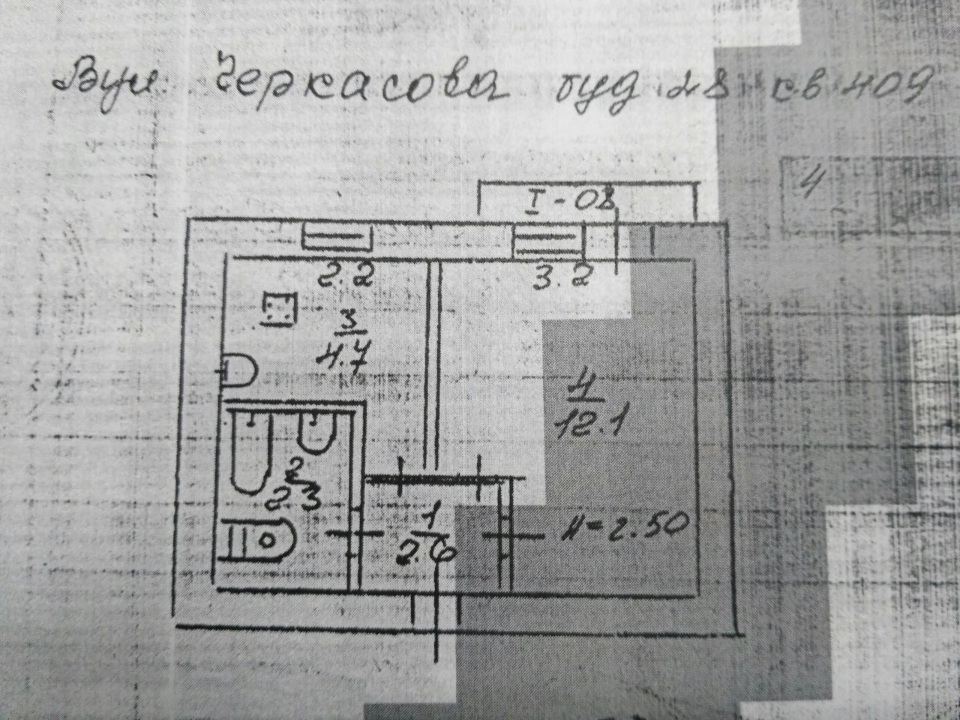 Вул. Черкасова буд 28 кв 409
4
I - 08
2.2 3.2
3
4.7
4
12.1
2
2.3
1
2.6
H=2.50